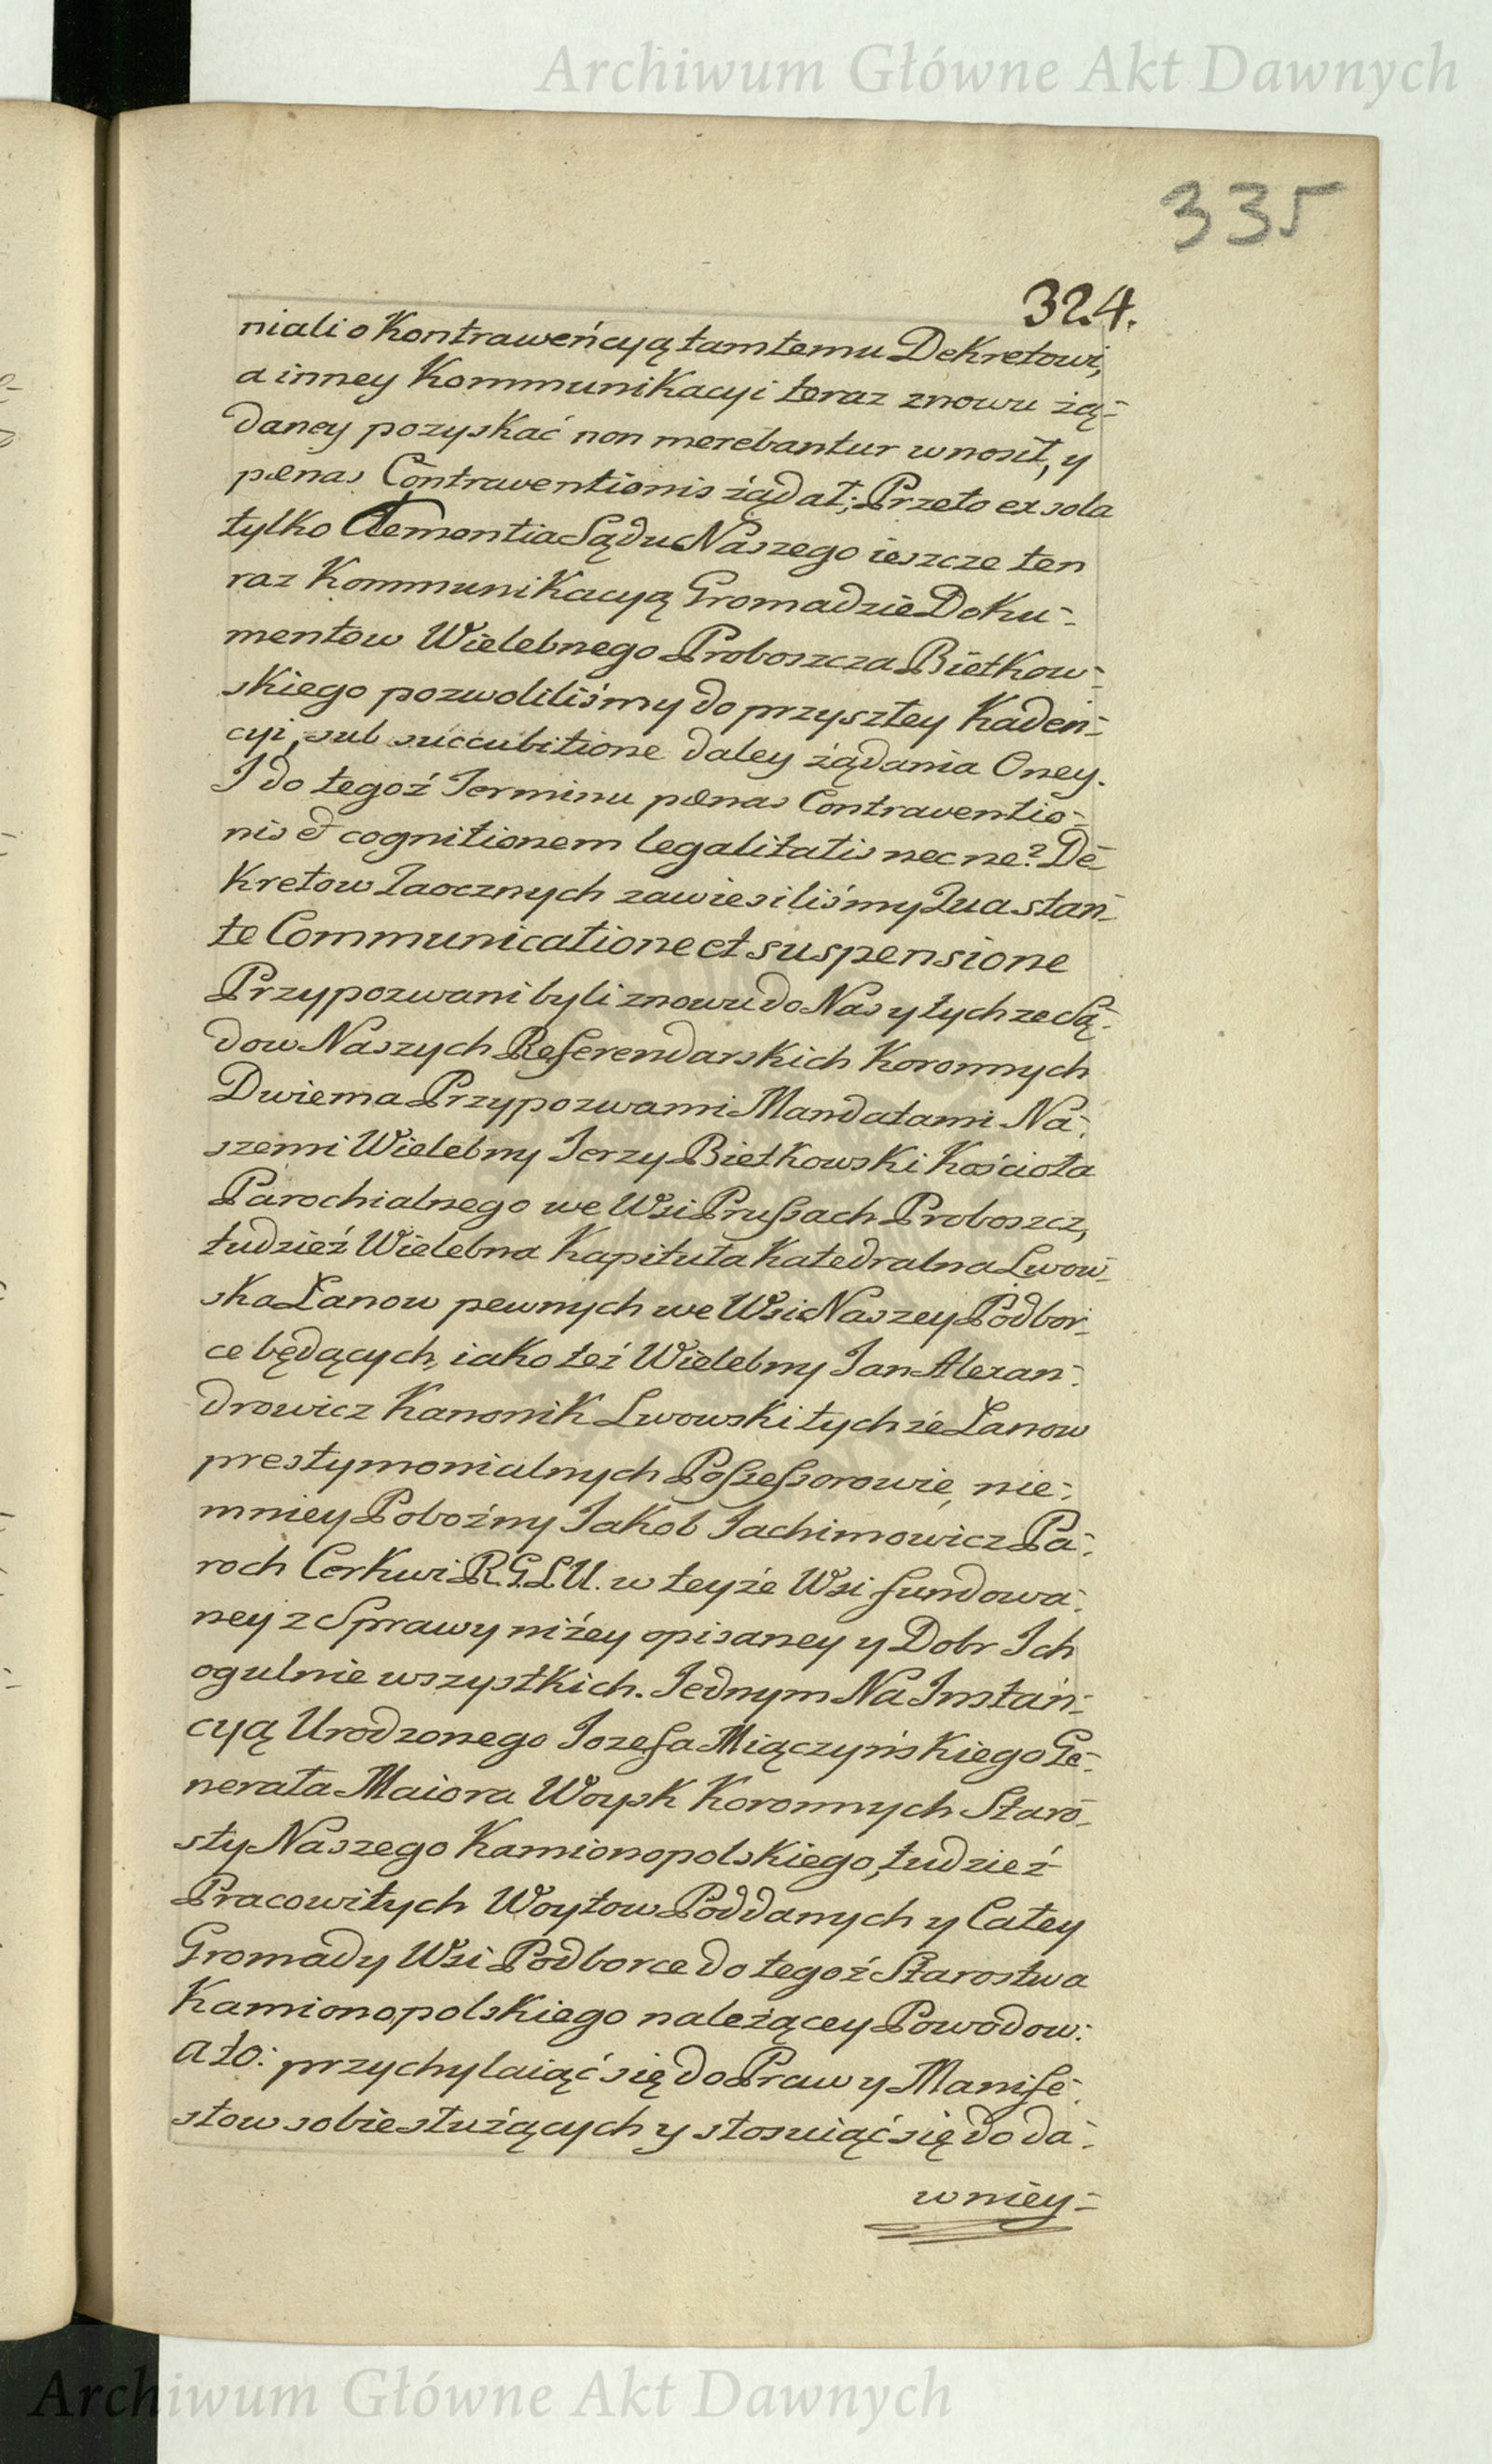 Archiwum Główne Akt Dawnych
335
324.
niali o Kontraweńcyą tamtemu Dekretowi,
a inney Kommunikacyi teraz znowu żą=
daney pozyskać non merebantur wnosił, y
pænas Contraventionis żądał; Przeto ex sola
tylko Clementia Sądu Naszego ieszcze ten
raz Kommunikacyą Gromadzie Doku=
mentow Wielebnego Proboszcza Biełkow=
skiego pozwoliliśmy do przyszłey Kaden=
cyi, sub succubitione daley żądania Oney.
I do tegoż Terminu pænas Contraventio=
nis et cognitionem legalitatis nec ne? De=
kretow Zaocznych zawiesiliśmy Qua stan=
te Communicatione et suspensione
Przypozwani byli znowu do Nas y tychże Są=
dow Naszych Referendarskich Koronnych
Dwiema Przypozwami Mandatami Na=
szemi Wielebny Jerzy Biełkowski Kościoła
Parochialnego we Wsi Prussach Proboszcz,
tudzież Wielebna Kapituła Katedralna Lwow=
ska Łanow pewnych we Wsi Naszey Podbor=
ce będących, iako też Wielebny Jan Alexan=
drowicz Kanonik Lwowski tychże Łanow
prestymonialnych Possessorowie, nie=
mniey Pobożny Jakob Jachimowicz Pa=
roch Cerkwi R.G.L.U. w teyże Wsi fundowa=
ney z Sprawy niżey opisaney y Dobr Ich
ogulnie wszystkich. Jednym Na Instan=
cyą Urodzonego Jozefa Miączyńskiego Ge=
nerała Maiora Woysk Koronnych Staro=
sty Naszego Kamionopolskiego, tudzież
Pracowitych Woytow Poddanych y Całey
Gromady Wsi Podborce do tegoż Starostwa
Kamionopolskiego należącey Powodow:
a to: przychylaiąć się do Praw y Manife=
stow sobie służących y stosuiąć się do da=
wniey=
Archiwum Główne Akt Dawnych